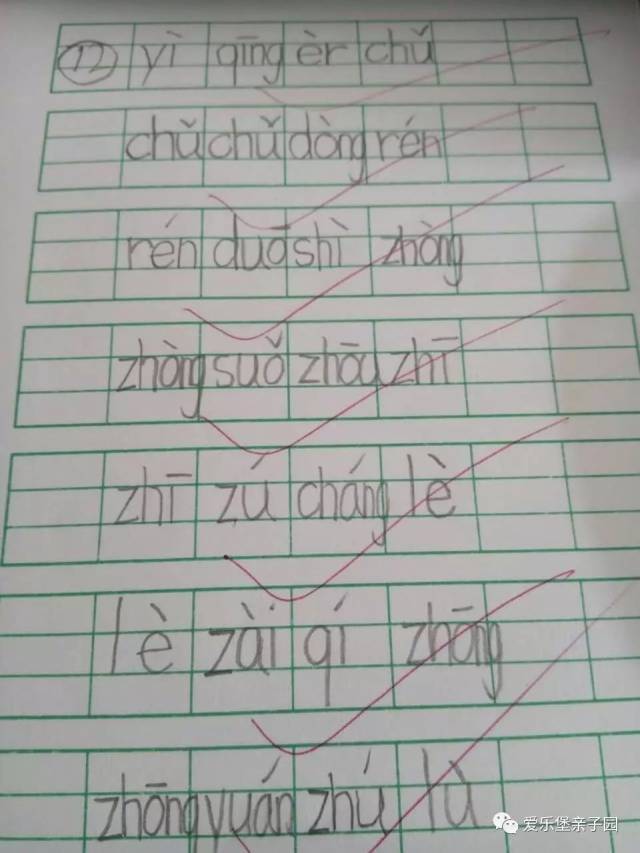 12 yì qīng èr chǔ
chǔ chǔ dòng rén
rén duō shì zhòng
zhòng suǒ zhōu zhī
zhī zú cháng lè
lè zài qí zhōng
zhōng yuán zhú lù
爱乐堡亲子园